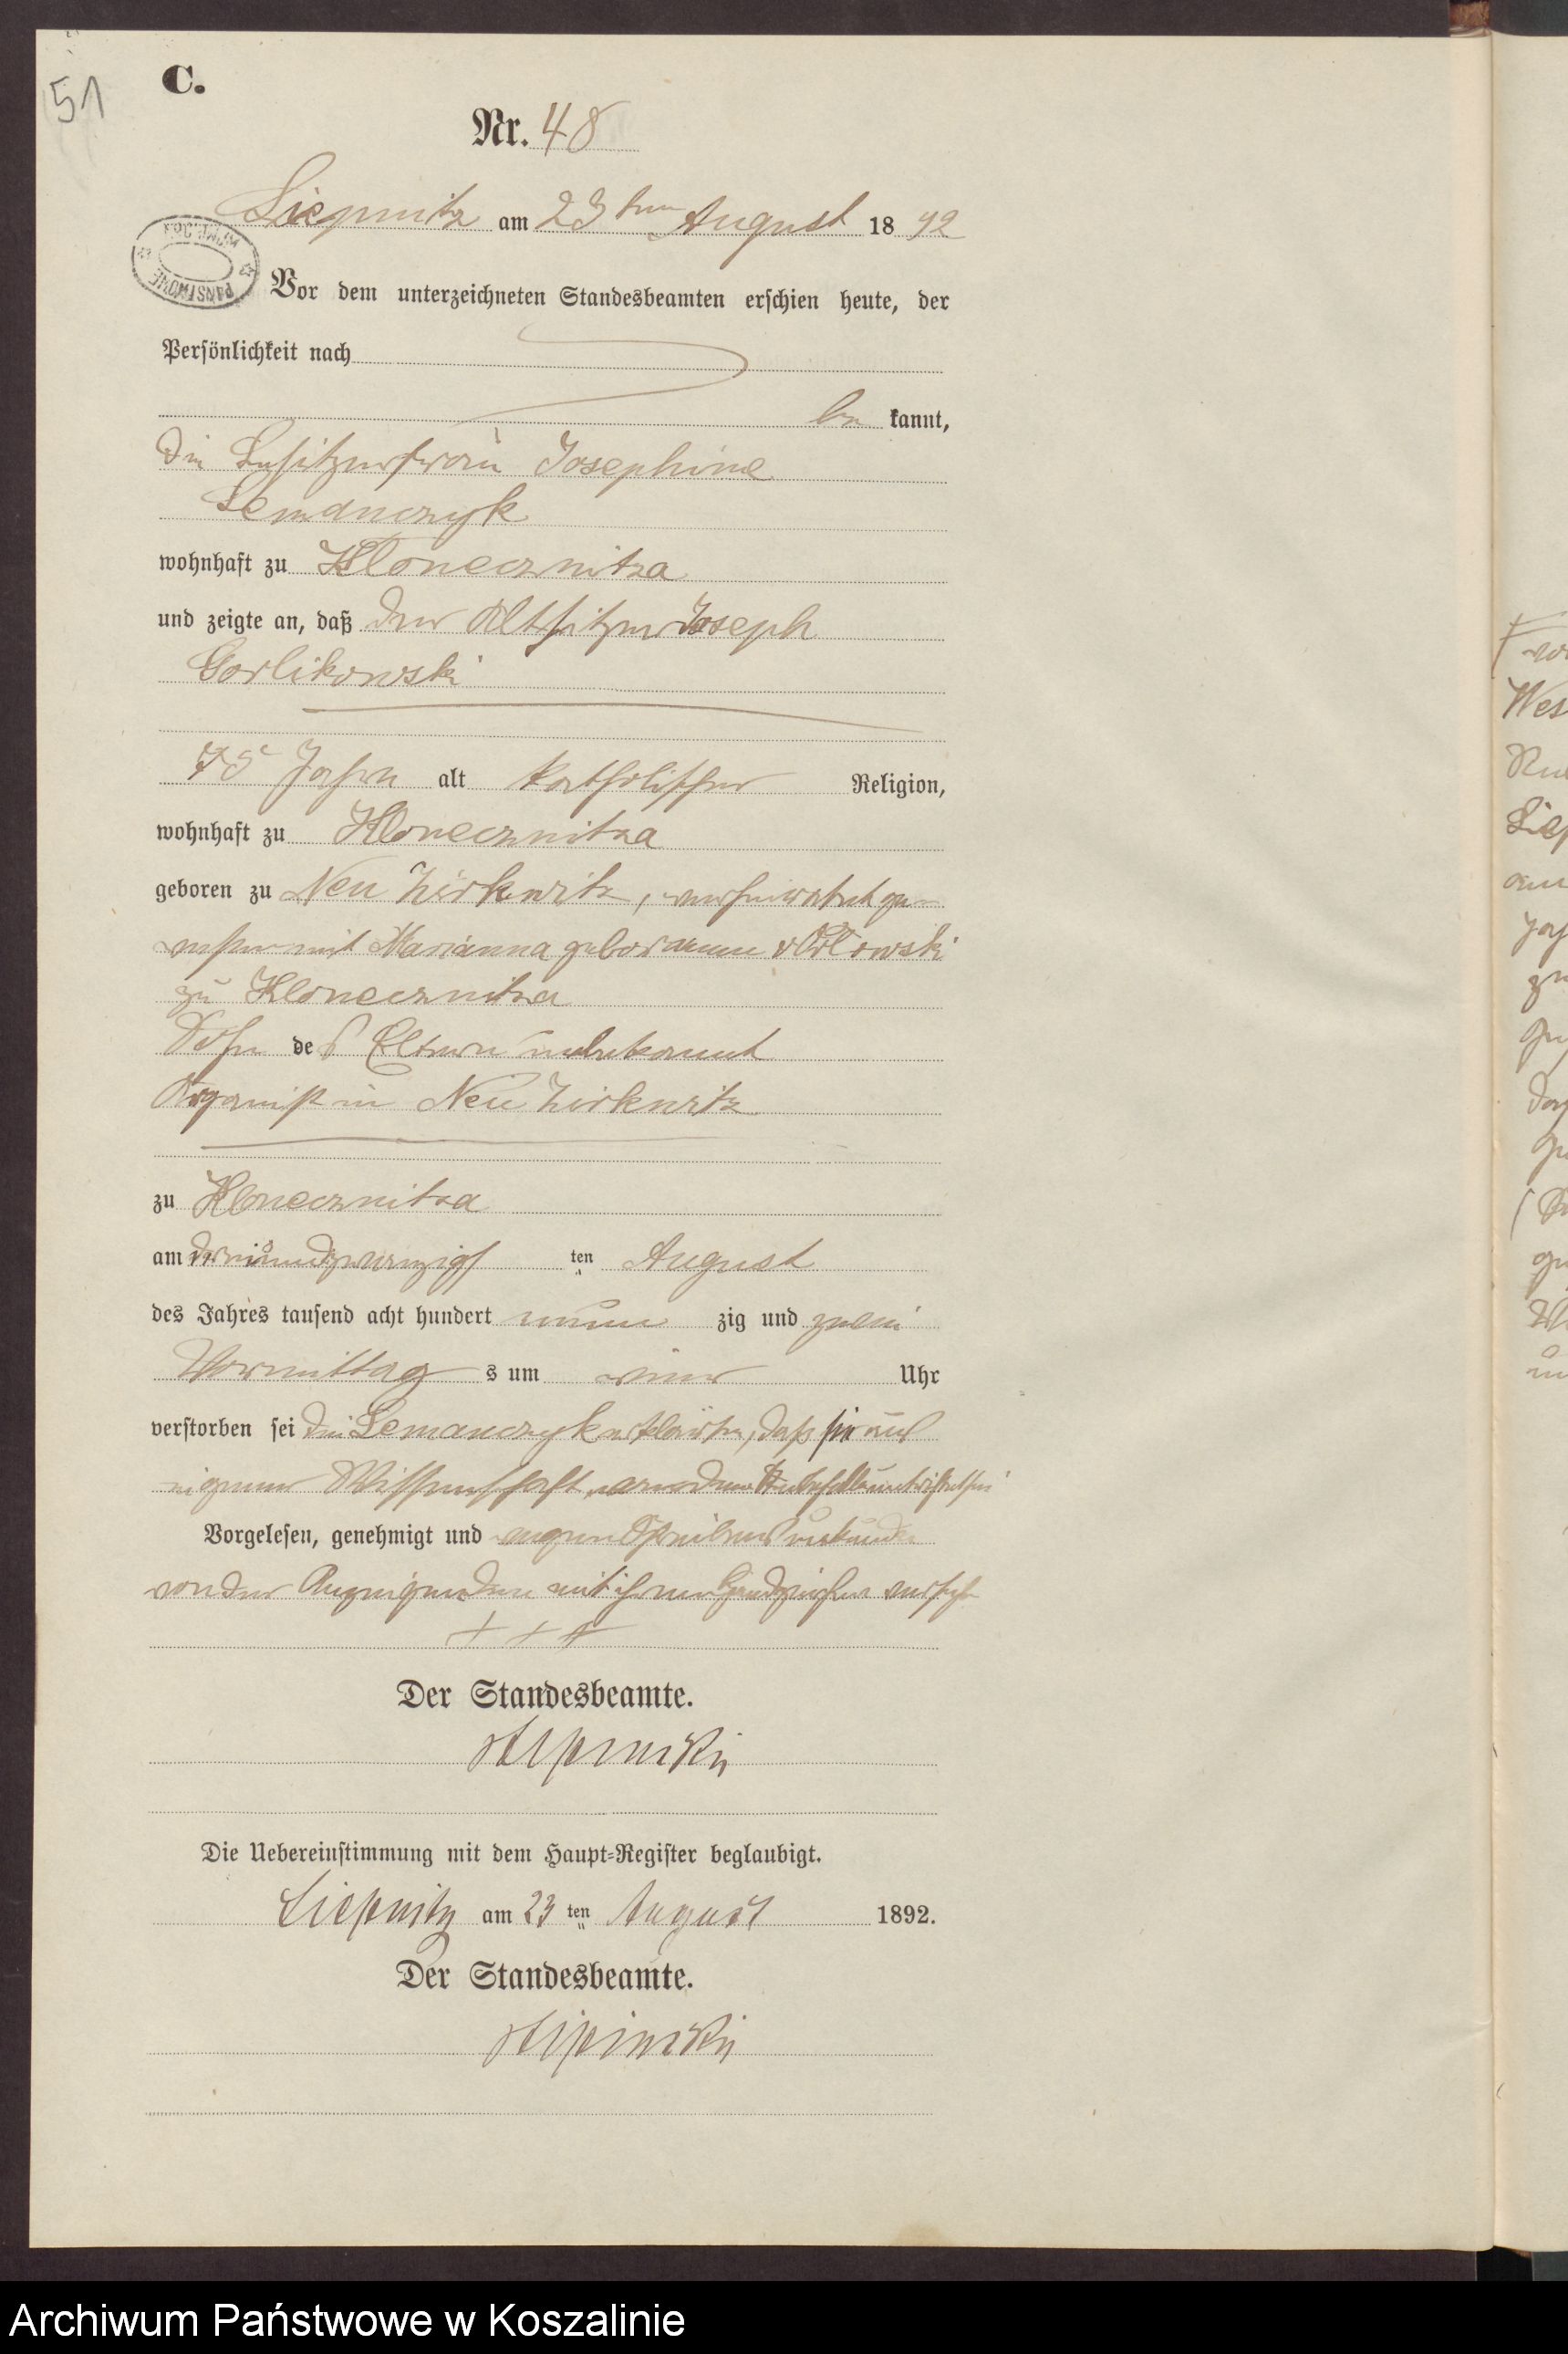 51
C.
Nr. 48
Liepnitz am 23ten August 1892
ARCHIWUM PAŃSTWOWE
Vor dem unterzeichneten Standesbeamten erschien heute, der
Persönlichkeit nach
be kannt,
die Besitzerfrau Josephine
Lemanczyk
wohnhaft zu Klonecznitza
und zeigte an, daß der Altsitzer Joseph
Gorlikowski
75 Jahre alt katholischer Religion,
wohnhaft zu Klonecznitza
geboren zu Neu Zirkwitz, verheirathet ge-
wesen mit Marianna geborenen
zu Klonecznitza
Sohn des Eltern unbekannt
Organist in Neu Zirkwitz
zu Klonecznitza
am dreiundzwanzigs ten August
des Jahres tausend acht hundert neun zig und zwei
Vormittag s um einer Uhr
verstorben sei die Lemanczyk erklärte, daß sie aus
eigener Wissenschaft von dem Sterbefall unterrichtet sei
Vorgelesen, genehmigt und wegen Schreibensunkunde
von der Anzeigenden mit ihrem Handzeichen versehn
+ + +
Der Standesbeamte.
Die Uebereinstimmung mit dem Haupt-Register beglaubigt.
Liepnitz am 23 ten August 1892.
Der Standesbeamte.
Wes
Archiwum Państwowe w Koszalinie